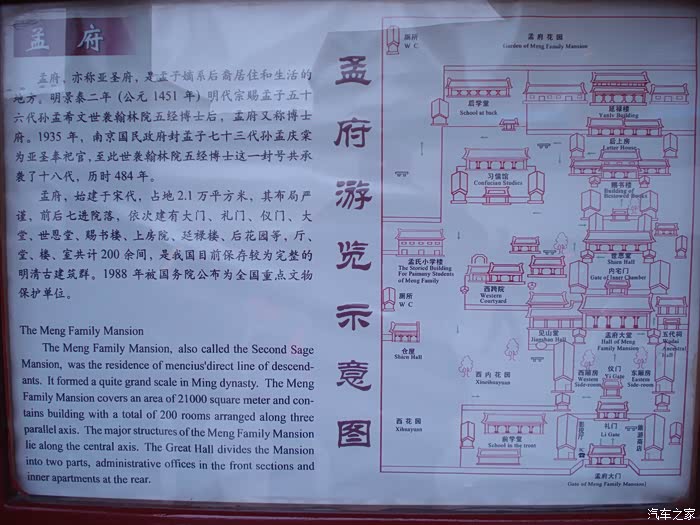 孟府
孟府，亦称亚圣府，是孟子嫡系后裔居住和生活的
地方。明景泰二年（公元 1451 年）明代宗赐孟子五十
六代孙孟希文世袭翰林院五经博士后，孟府又称博士
府。1935 年，南京国民政府封孟子七十三代孙孟庆棠
为亚圣奉祀官，至此世袭翰林院五经博士这一封号共承
袭了十八代，历时 484 年。
孟府，始建于宋代，占地 2.1 万平方米，其布局严
谨，前后七进院落，依次建有大门、礼门、仪门、大
堂、世恩堂、赐书楼、上房院、延禄楼、后花园等，厅、
堂、楼、室共计 200 余间，是我国目前保存较为完整的
明清古建筑群。1988 年被国务院公布为全国重点文物
保护单位。
The Meng Family Mansion
The Meng Family Mansion, also called the Second Sage
Mansion, was the residence of mencius'direct line of descend-
ants. It formed a quite grand scale in Ming dynasty. The Meng
Family Mansion covers an area of 21000 square meter and con-
tains building with a total of 200 rooms arranged along three
parallel axis. The major structures of the Meng Family Mansion
lie along the central axis. The Great Hall divides the Mansion
into two parts, administrative offices in the front sections and
inner apartments at the rear.
孟府游览示意图
厕所
W C
孟府花园
Garden of Meng Family Mansion
后学堂
School at back
延禄楼
Yanlv Building
后上房
Latter House
习儒馆
Confucian Studies
赐书楼
Building of
Bestowed Books
世恩堂
Shien Hall
内宅门
Gate of Inner Chamber
孟氏小学楼
The Storied Building
For Paimany Students
of Meng Family
西跨院
Western
Courtyard
厕所
W C
见山堂
Jianshan Hall
孟府大堂
Hall of Meng
Family Mansion
五代祠
Wudai
Ancestral
Hall
仓屋
Shien Hall
西内花园
Xineihuayuan
西厢房
Western
Side-room
仪门
Yi Gate
东厢房
Eastern
Side-room
西花园
Xihuayuan
前学堂
School in the front
影视厅
礼门
Li Gate
旅游商店
孟府大门
Gate of Meng Family Mansion
汽车之家